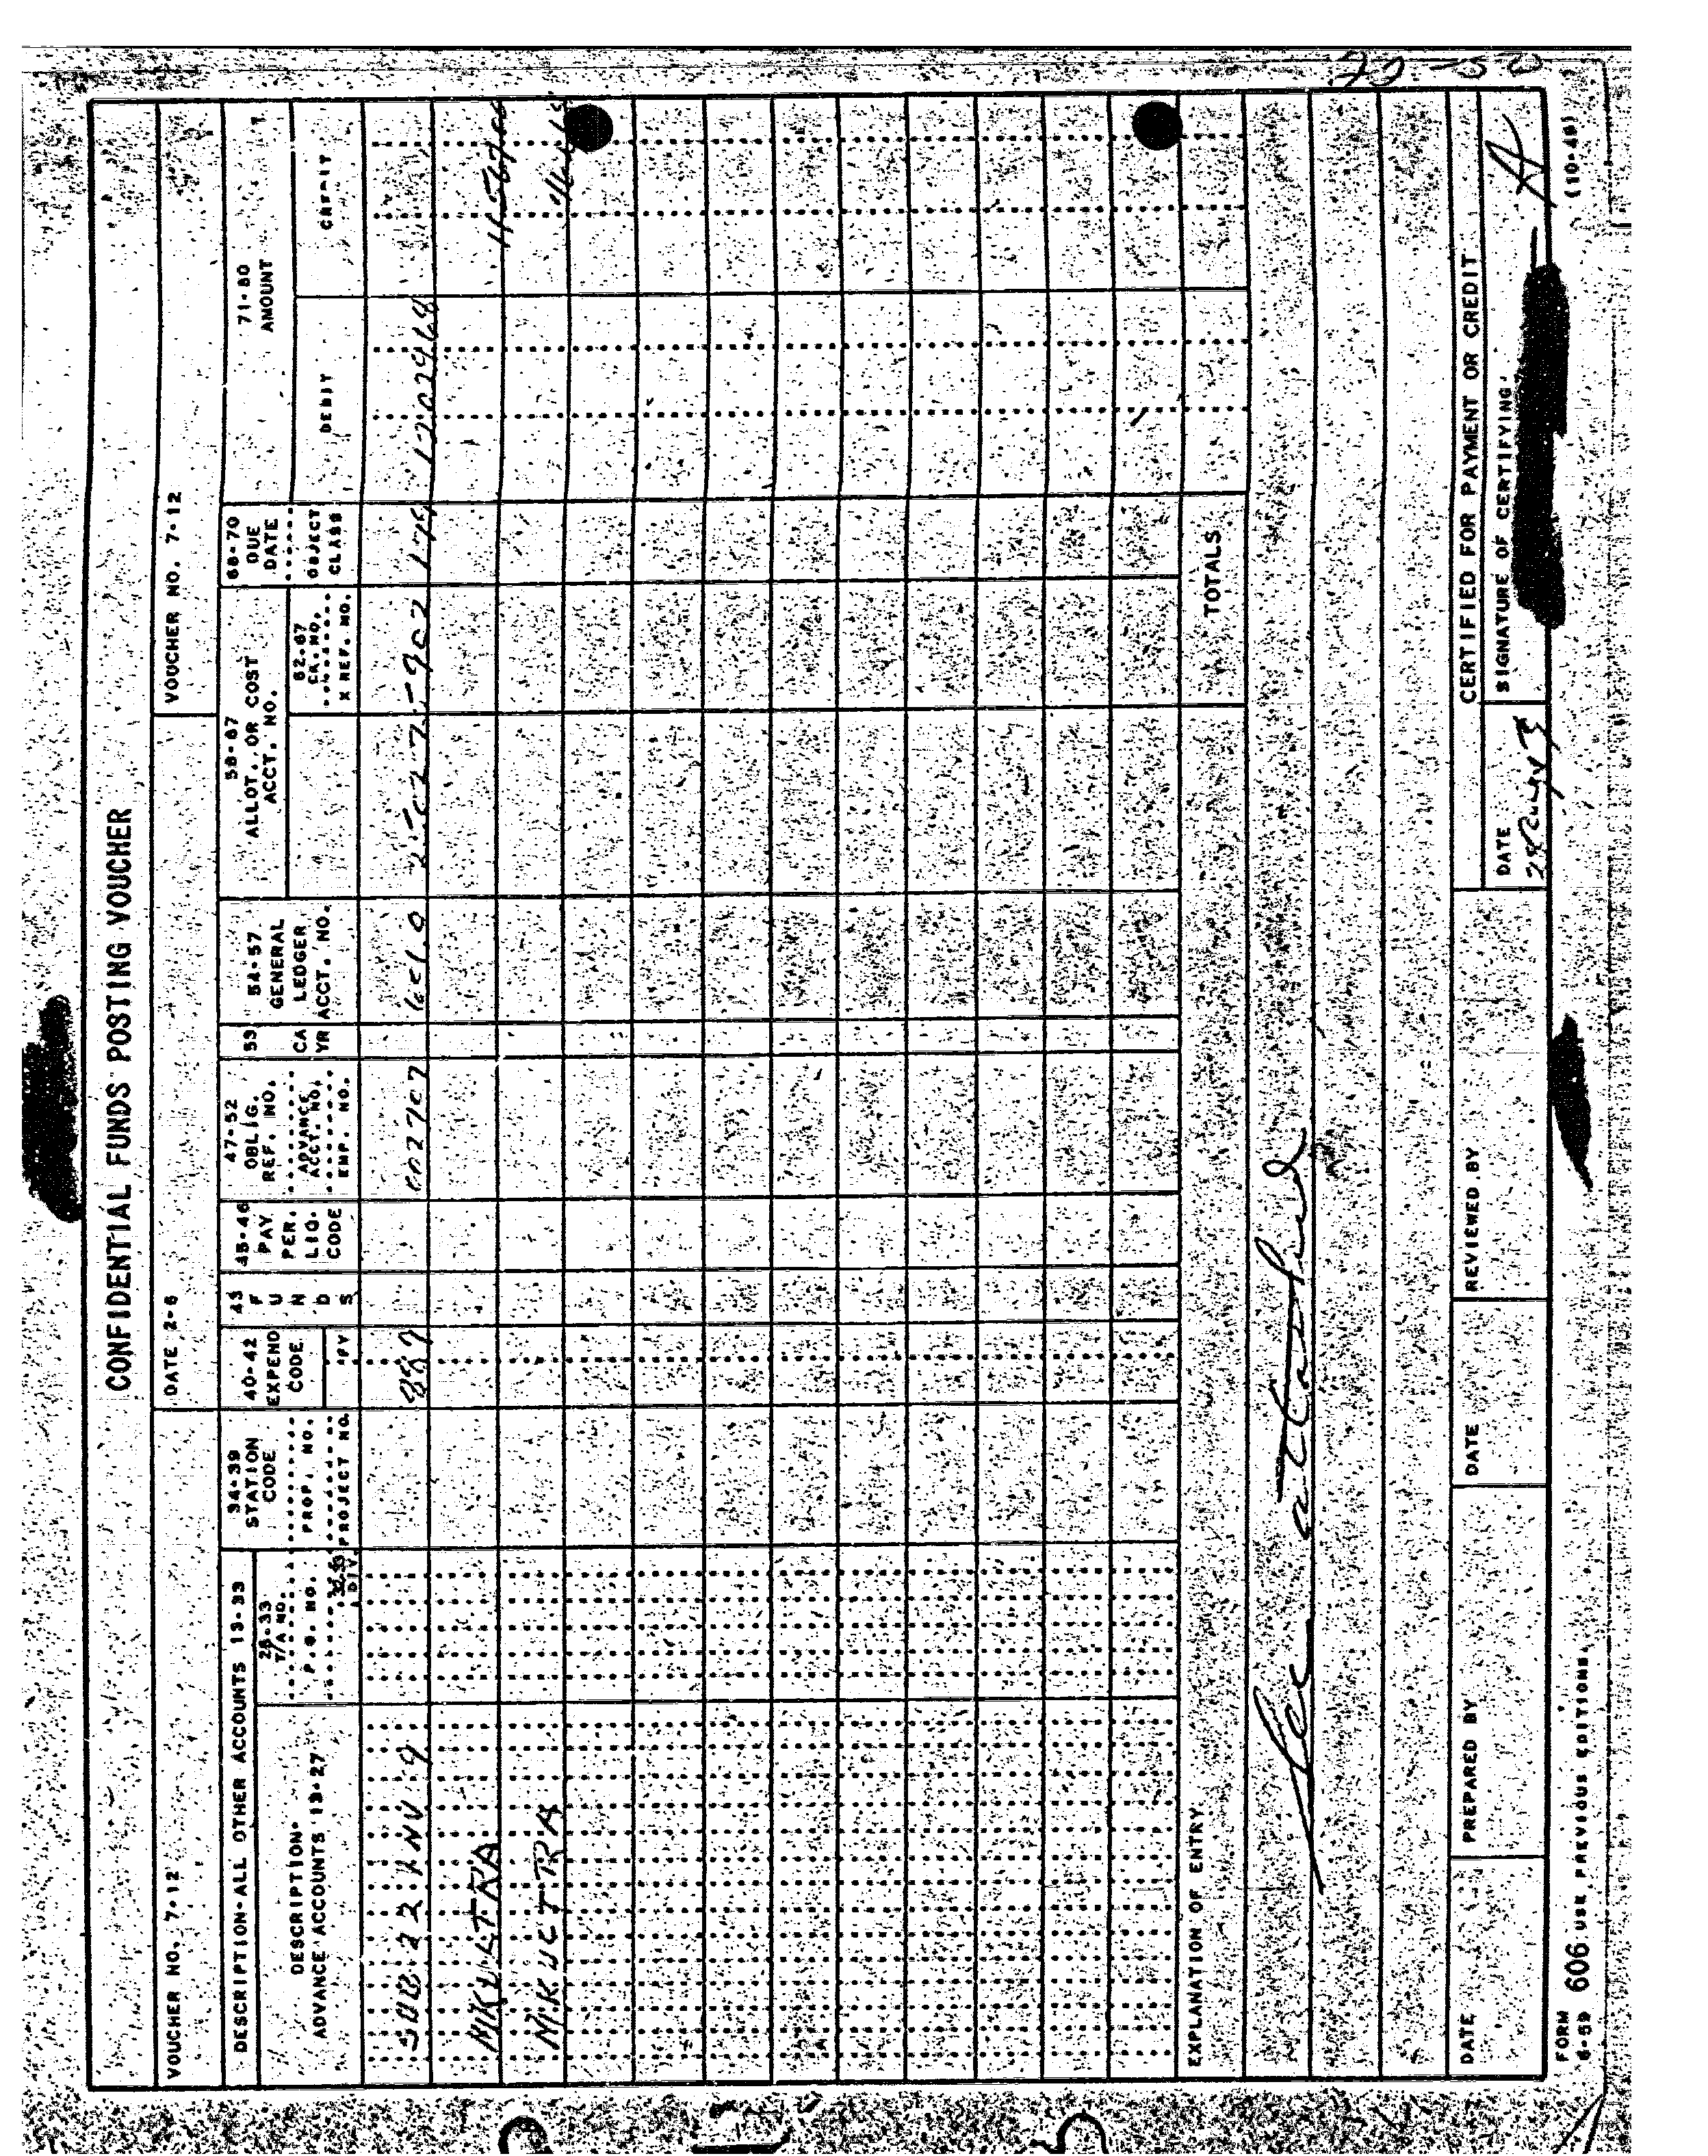 CONFIDENTIAL FUNDS POSTING VOUCHER
VOUCHER NO. 7-12
DATE 2-6
VOUCHER NO. 7-12
DESCRIPTION-ALL OTHER ACCOUNTS 13-33
DESCRIPTION-
ADVANCE ACCOUNTS 13-27
28-33
T/A NO.
P.O. NO.
DIV.
34-39
STATION
CODE
PROP. NO.
PROJECT NO.
40-42
EXPEND
CODE
FY
43
F
U
N
D
S
45-46
PAY
PER.
LIQ.
CODE
47-52
OBLIG.
REF. NO.
ADVANCE
ACCT. NO.
EMP. NO.
53
CA
YR
54-57
GENERAL
LEDGER
ACCT. NO.
58-67
ALLOT. OR COST
ACCT. NO.
62-67
CR. NO.
X REF. NO.
68-70
DUE
DATE
OBJECT
CLASS
71-80
AMOUNT
DEBIT
CREDIT
SUB 22 INV 9
MKULTRA
MKULTRA
EXPLANATION OF ENTRY
TOTALS
See attached
DATE
PREPARED BY
DATE
REVIEWED BY
CERTIFIED FOR PAYMENT OR CREDIT
DATE
SIGNATURE OF CERTIFYING
FORM
6-59
606 USE PREVIOUS EDITIONS.
(10-48)